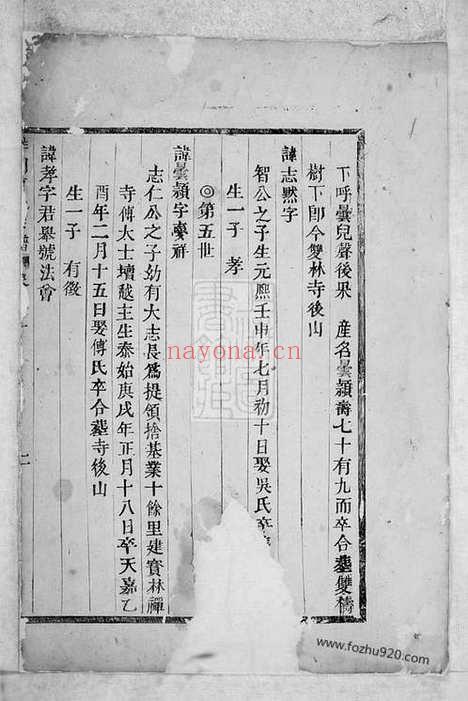 下呼曇兒聲後果 產名曇穎壽七十有九而卒合墓雙檮
樹下卽今雙林寺後山
諱志默字
智公之子生元熈壬申年七月初十日娶吳氏卒
生一子 孝
◎第五世
諱曇穎字慶祥
志仁公之子幼有大志長爲提領捨基業十餘里建寶林禪
寺傳大士壇越主生泰始庚戌年正月十八日卒天嘉乙
酉年二月十五日娶傅氏卒合墓寺後山
生一子 有徵
諱孝字君舉號法會
二
nayona.cn
www.fozhu920.com